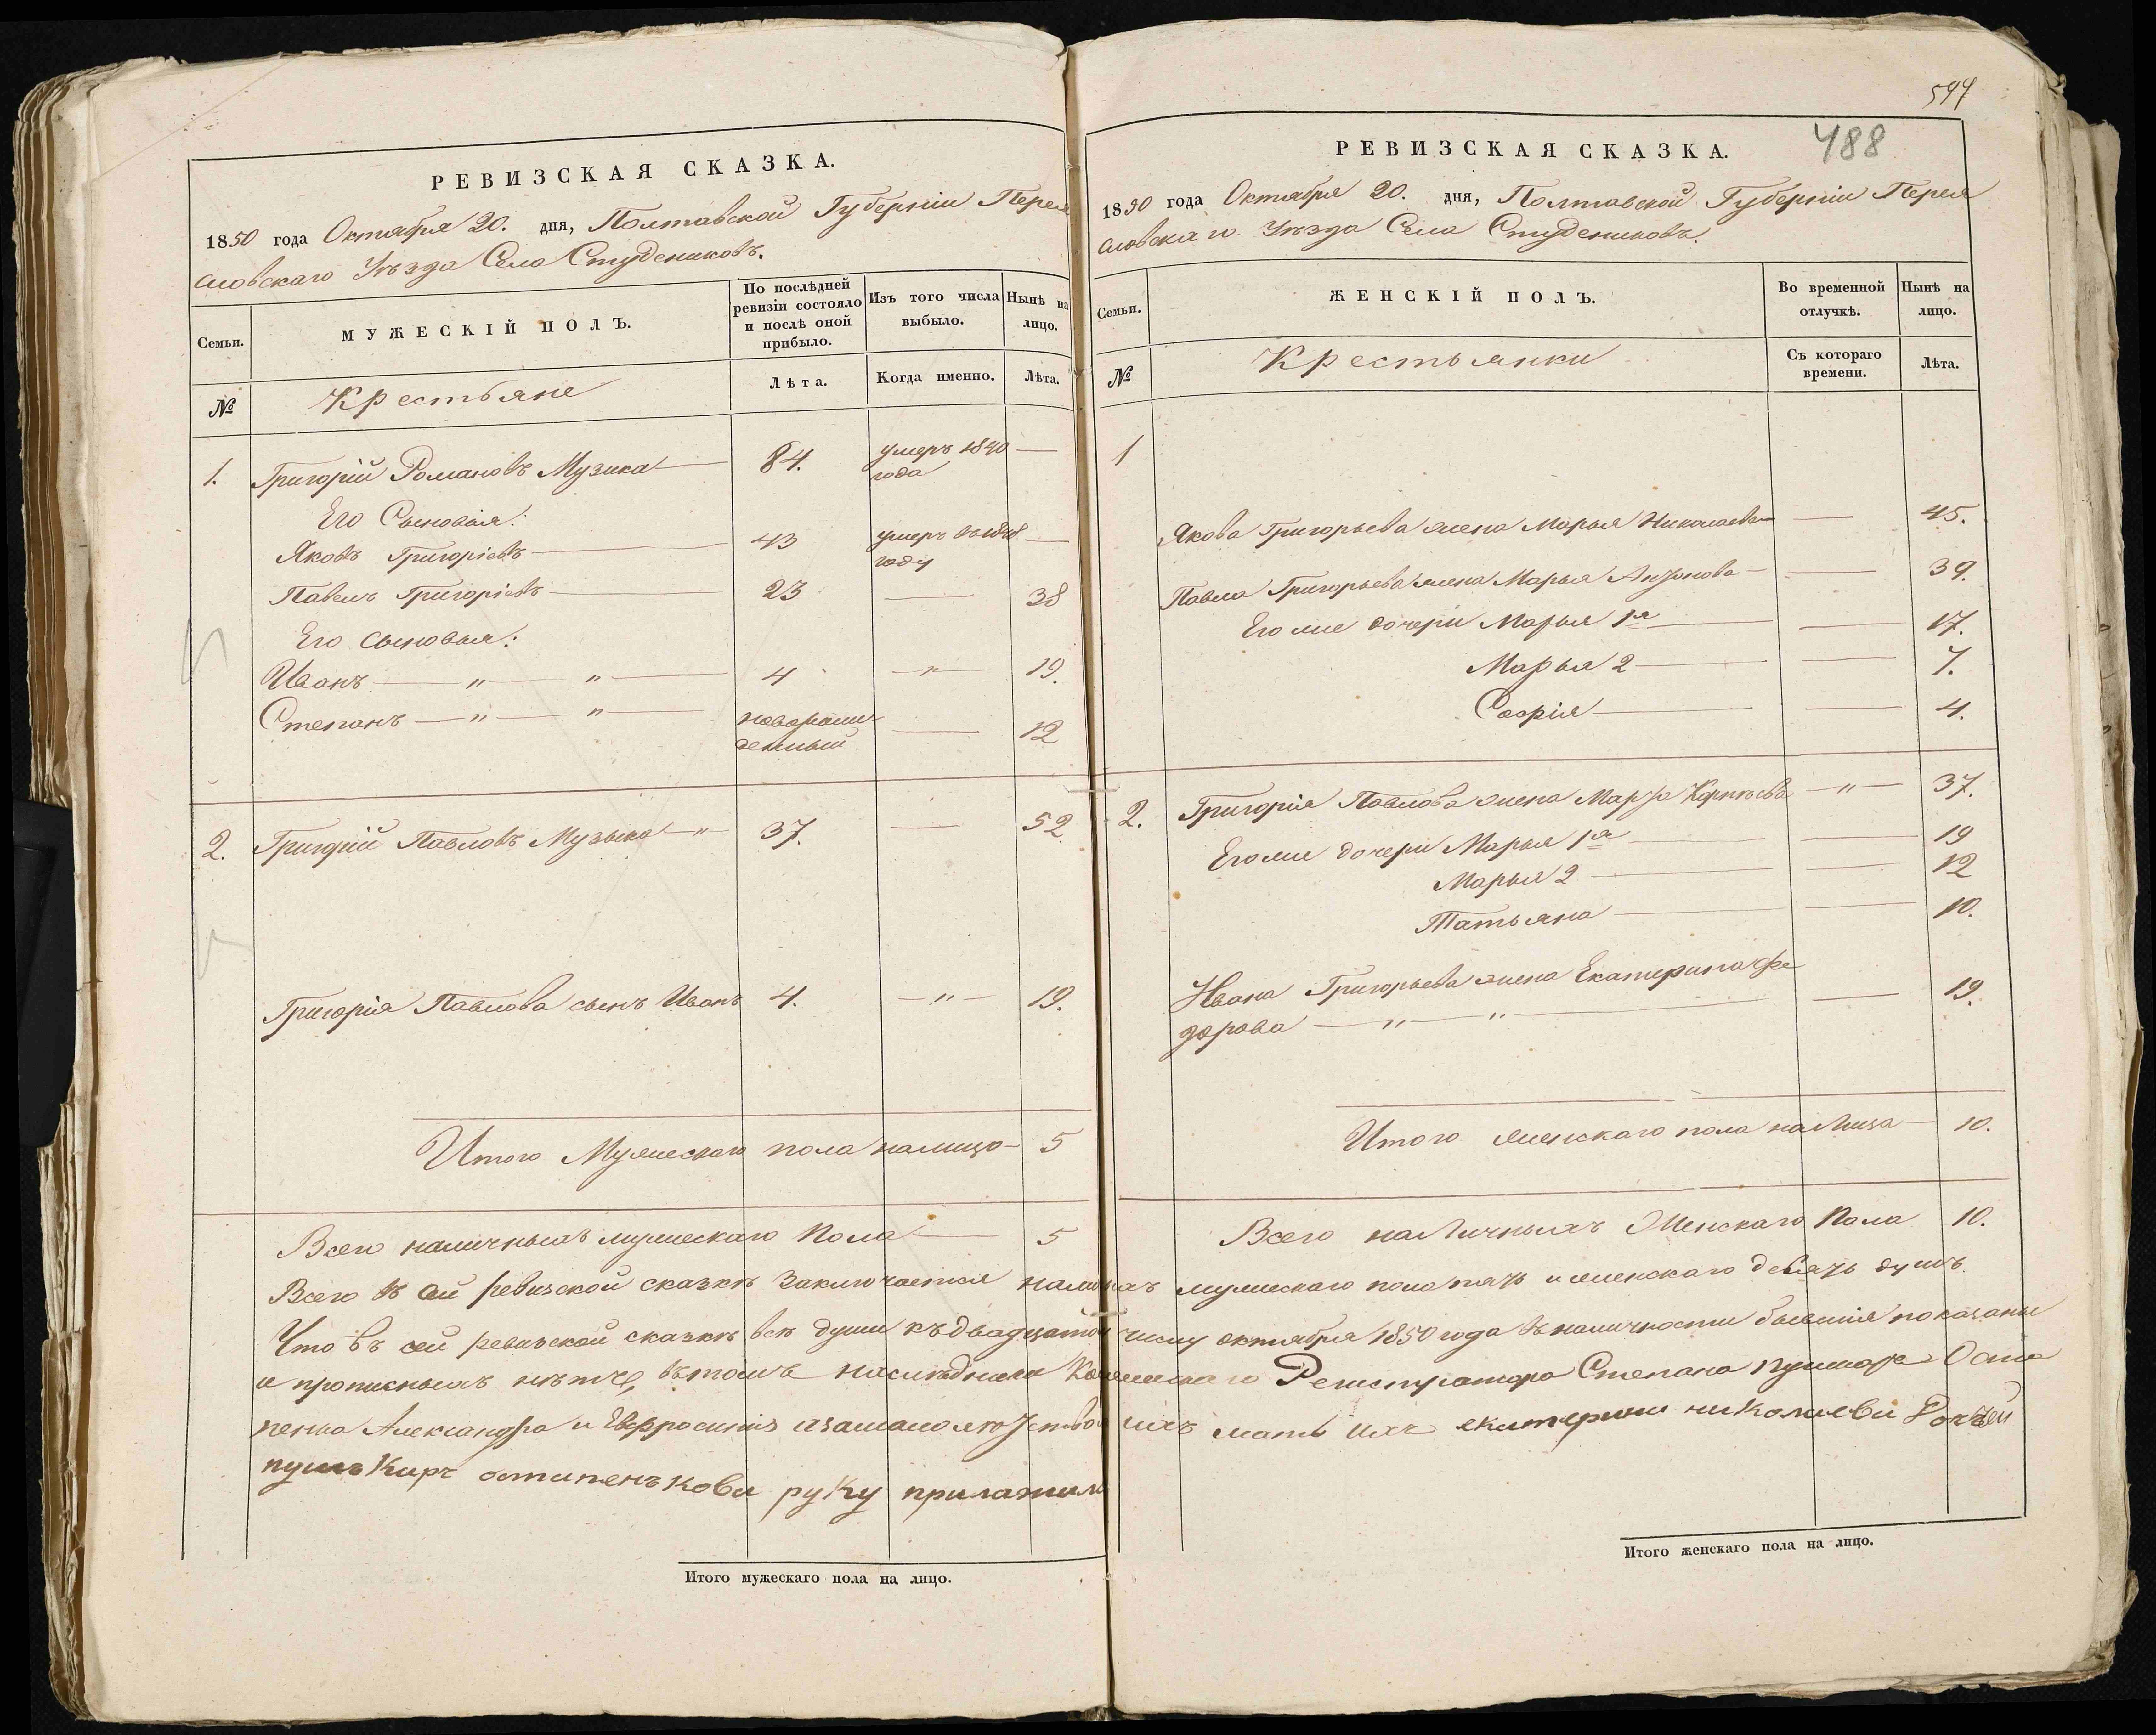 РЕВИЗСКАЯ СКАЗКА.
1850 года Октября 20. дня, Полтавской Губернiи Перея
словскаго Уѣзда Села Студениковъ.
Семьи.
МУЖЕСКIЙ ПОЛЪ.
По послѣдней
ревизiи состояло
и послѣ оной
прибыло.
Изъ того числа
выбыло.
Нынѣ на
лицо.
№
Крестьяне
Лѣта.
Когда именно.
Лѣта.
1. Григорiй Романовъ Музика 84. умеръ 1840 —
года
Его Сыновiя:
Яковъ Григорiевъ 43 умеръ въ 1848 —
году
Павелъ Григорiевъ 23 — 38
Его сыновья:
Иванъ — " — " — 4 — " — 19.
Степанъ — " — " — новорож 12
денный
2. Григорiй Павловъ Музыка — " — 37. — 52
Григорiя Павлова сынъ Иванъ 4. — " — 19.
Итого Мужескаго пола налицо — 5
Всего наличныхъ мужескаго Пола — 5
Итого мужескаго пола на лицо.
544
488
РЕВИЗСКАЯ СКАЗКА.
1850 года Октября 20. дня, Полтавской Губернiи Перея
словскаго Уѣзда Села Студениковъ.
Семьи.
ЖЕНСКIЙ ПОЛЪ.
Во временной
отлучкѣ.
Нынѣ на
лицо.
№
Крестьянки
Съ котораго
времени.
Лѣта.
1
Якова Григорьева жена Марья Николаева — 45.
Павла Григорьева жена Марья Антонова — 39.
Его же дочери Марья 1я — 17.
Марья 2 — 7.
Софiя — 4.
2. Григорiя Павлова жена Марфа Корнѣева — " — 37.
Его же дочери Марья 1я — 19
Марья 2 — 12
Татьяна — 10.
Ивана Григорьева жена Екатерина Фе
дорова — " — " — 19.
Итого женскаго пола на Лицо — 10.
Всего наЛичныхъ Женскаго Пола 10.
Всего въ сей ревизской сказкѣ заключается наличныхъ мужескаго пола пять и женскаго девять душъ.
Что въ сей ревизской сказкѣ всѣ души къ двадцатому числу октября 1850 года въ наличности бывшiя показаны
и прописныхъ нѣтъ, въ томъ наслѣдники Колежскаго Регистратора Степана Пушкаря Оста
пенка Александра и Евфросинiя а за малолютством ихъ мать ихъ екатерини николиеви дочъ
пушъкиръ остипенъкови руку приложила
Итого женскаго пола на лицо.